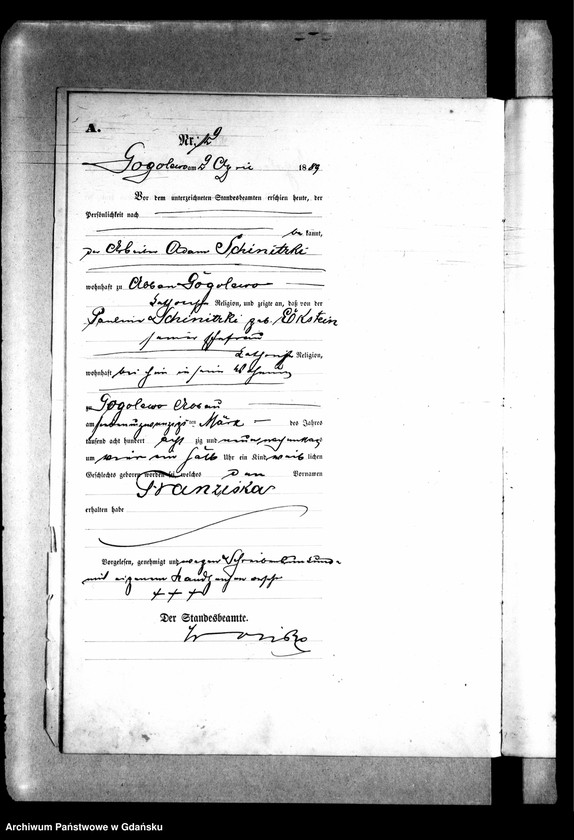 A.
Nr. 12
Gogolewo am 2 April 1889
Vor dem unterzeichneten Standesbeamten erschien heute, der
Persönlichkeit nach
be kannt,
der Arbeiter Adam Schinitzki
wohnhaft zu Abbau Gogolewo
kathol Religion, und zeigte an, daß von der
Pauline Schinitzki geb. Eckstein
seiner Ehefrau
kathol Religion,
wohnhaft bei ihm in seiner Wohnung
zu Gogolewo Abbau
am ten März des Jahres
tausend acht hundert acht zig und neun
um vier ein halb Uhr ein Kind weib lichen
Geschlechts geboren worden sei, welches den Vornamen
Franziska
erhalten habe
Vorgelesen, genehmigt und wegen Schreibensunkunde
mit eigenem Handzeichen
+ + +
Der Standesbeamte.
Archiwum Państwowe w Gdańsku